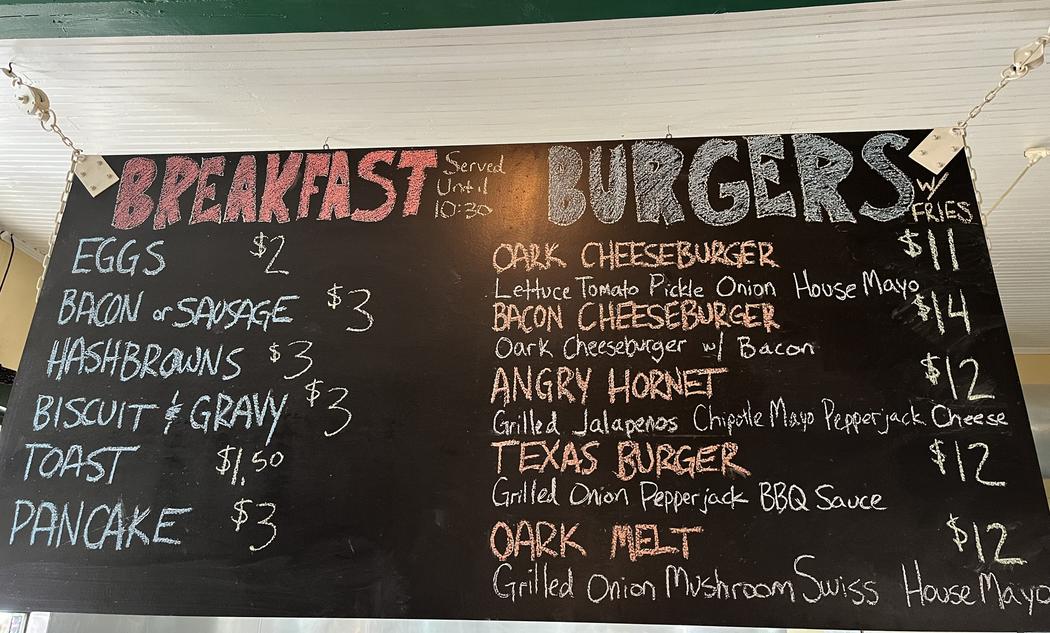 BREAKFAST Served Until 10:30
EGGS $2
BACON or SAUSAGE $3
HASHBROWNS $3
BISCUIT & GRAVY $3
TOAST $1.50
PANCAKE $3
BURGERS w/ FRIES
OARK CHEESEBURGER $11
Lettuce Tomato Pickle Onion House Mayo
BACON CHEESEBURGER $14
Oark Cheeseburger w/ Bacon
ANGRY HORNET $12
Grilled Jalapenos Chipotle Mayo Pepperjack Cheese
TEXAS BURGER $12
Grilled Onion Pepperjack BBQ Sauce
OARK MELT $12
Grilled Onion Mushroom Swiss House Mayo